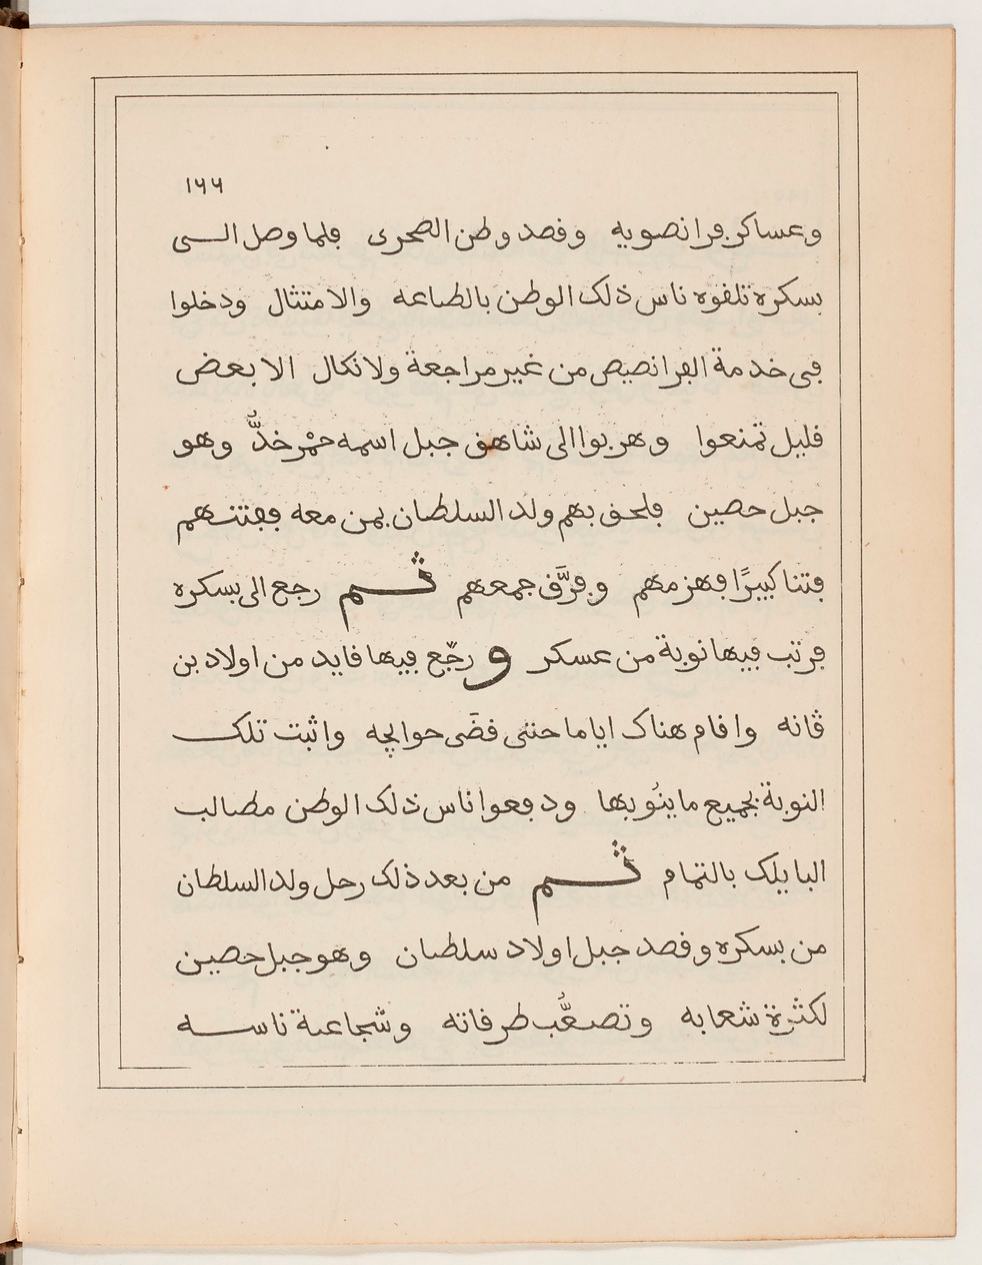 ١٦٦
وعساكر ڢرانصويه وفصد وطن الصحرى ڢلما وصل الـــى
بسكره تلفوه ناس ذلك الوطن بالطاعه والامتثال ودخلوا
ڢى خدمة الڢرانصيص من غير مراجعة ولا نكال الا بعض
فليل تمنعوا وهربوا الى شاهف جبل اسمه حمْر خدُّ وهو
جبل حصين ڢلحف بهم ولد السلطان بمن معه ڢڢتنـهم
ڢتنا كبيرًا ڢهزمهم وڢرَّف جمعهم ثـــم رجع الى بسكره
ڢرتب ڢيها نوبة من عسكر و رجّع ڢيها فايد من اولاد بن
ڨانه وافام هناك اياما حتى فضَى حوايجه واثبت تلكـــ
النوبة بجميع ما ينُوبها ودڢعوا ناس ذلك الوطن مطالب
البايلك بالتمام ثـــم من بعد ذلك رحل ولد السلطان
من بسكره وفصد جبل اولاد سلطان وهو جبل حصين
لكثرة شعابه وتصعُّب طرفاته وشجاعة ناســـه